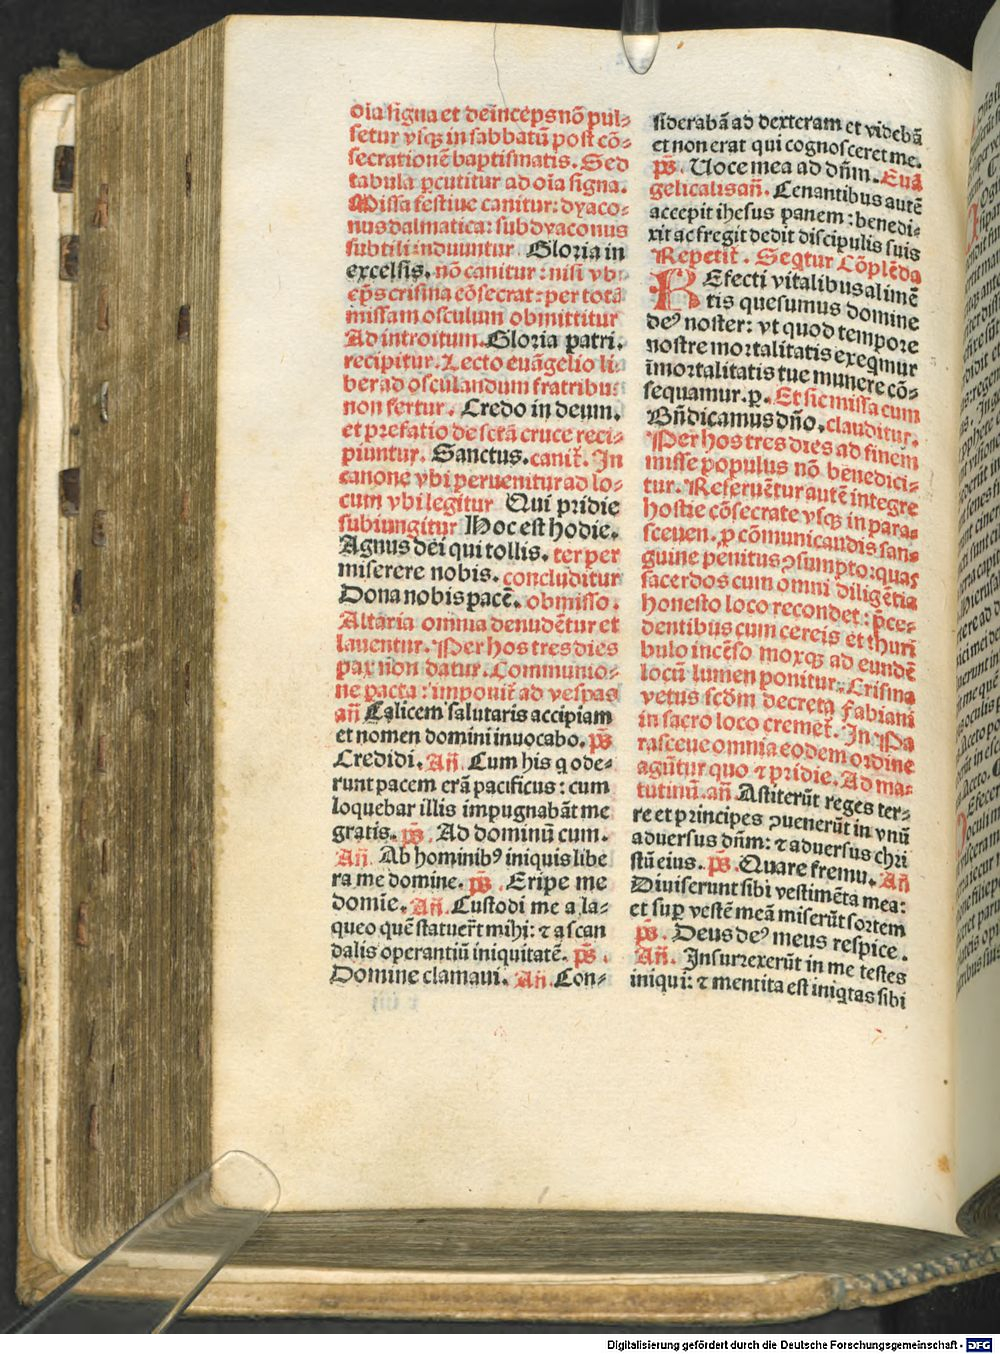 oīa signa et deīnceps nō pul-
setur vsq; in sabbatū post cō-
secrationē baptismatis. Sed
tabula ꝑcutitur ad oīa signa.
Missa festiue canitur: dyaco-
nus dalmatica: subdyaconus
subtili induuntur. Gloria in
excelsis. nō canitur: nisi vbi
ep̄s crisma cōsecrat: per totā
missam osculum obmittitur
Ad introitum. Gloria patri.
recipitur. Lecto euāgelio li-
ber ad osculandum fratribus
non fertur. Credo in deum.
et prefatio de sctā cruce reci-
piuntur. Sanctus. canit᷑. In
canone vbi peruenitur ad lo-
cum vbi legitur Qui pridie
subiungitur Hoc est hodie.
Agnus dei qui tollis. ter per
miserere nobis. concluditur
Dona nobis pacē. obmisso.
Altaria omnia denudētur et
lauentur. Per hos tres dies
pax non datur. Communio-
ne pacta: imponit᷑ ad vespas
añ Calicem salutaris accipiam
et nomen domini inuocabo. ps̄
Credidi. Añ. Cum his q ode-
runt pacem erā pacificus: cum
loquebar illis impugnabāt me
gratis. ps̄. Ad dominū cum.
Añ. Ab hominibꝰ iniquis libe
ra me domine. ps̄. Eripe me
domīe. Añ. Custodi me a la-
queo quē statuer̄t mihi: ⁊ a scan
dalis operantiū iniquitatē. ps̄.
Domine clamaui. Añ. Con-
siderabā ad dexteram et videbā
et non erat qui cognosceret me.
ps̄. Uoce mea ad dn̄m. Euā
gelicalis añ. Cenantibus autē
accepit ihesus panem: benedi-
xit ac fregit dedit discipulis suis
Repetit᷑. Seqtur Cōplēda
REfecti vitalibus alimē
tis quesumus domine
deꝰ noster: vt quod tempore
nostre mortalitatis exeqmur
imortalitatis tue munere cō-
sequamur. ꝑ. Et sic missa cum
Bn̄dicamus dn̄o. clauditur.
Per hos tres dies ad finem
misse populus nō benedici-
tur. Reseruētur autē integre
hostie cōsecrate vsq; in para-
sceuen. ꝑ cōmunicādis san-
guine penitus ꝯsumpto: quas
sacerdos cum omni diligētia
honesto loco recondet: p̄ce-
dentibus cum cereis et thuri
bulo incēso moxq; ad eundē
locū lumen ponitur. Crisma
vetus scd̄m decreta Fabiani
in sacro loco cremet᷑. In Pa
rasceue omnia eodem ordine
agūtur quo ⁊ pridie. Ad ma-
tutinū. añ. Astiterūt reges ter-
re et principes ꝯuenerūt in vnū
aduersus dn̄m: ⁊ aduersus chri
stū eius. ps̄. Quare fremu. Añ
Diuiserunt sibi vestimēta mea:
et suꝑ vestē meā miserūt sortem
ps̄. Deus deꝰ meus respice.
Añ. Insurrexerūt in me testes
iniqui: ⁊ mentita est iniqtas sibi
Digitalisierung gefördert durch die Deutsche Forschungsgemeinschaft - DFG